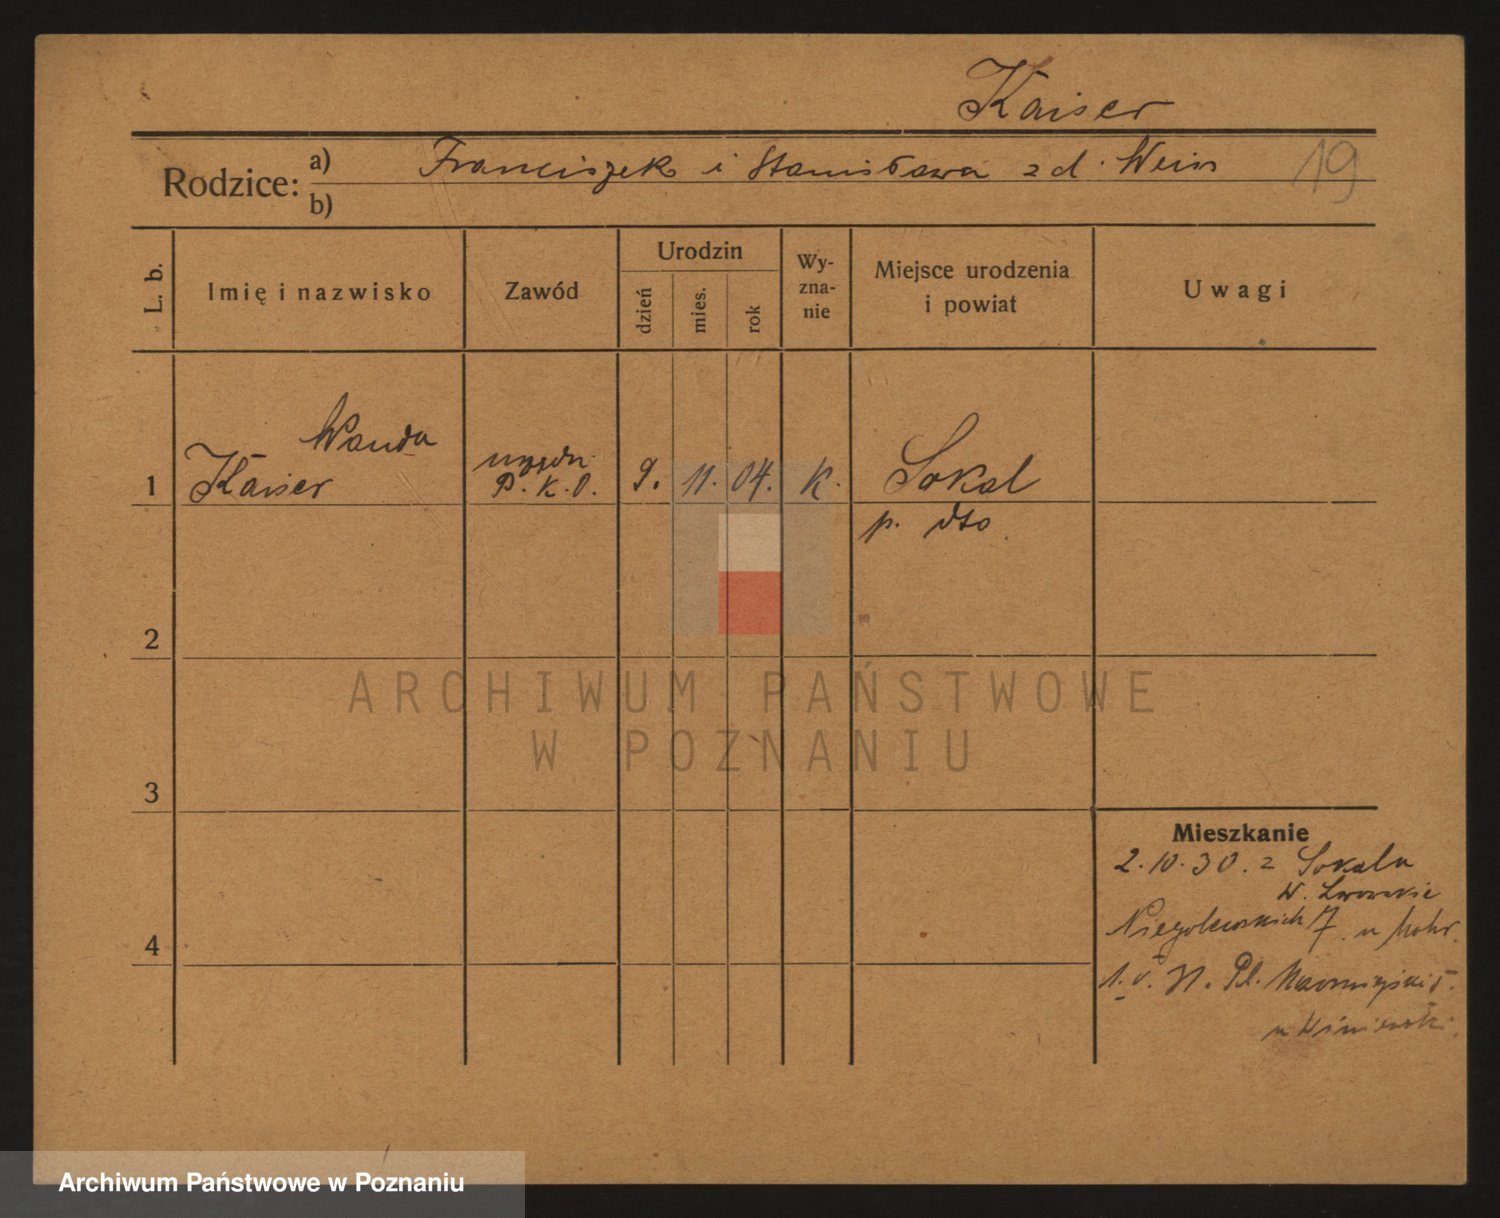 Kaiser
Rodzice: a) Franciszek i Stanisława z d. Weiss 19
b)
L. b.
Imię i nazwisko
Zawód
Urodzin
dzień
mies.
rok
Wy-
zna-
nie
Miejsce urodzenia
i powiat
Uwagi
Wanda
1 Kaiser
urzędn.
P.K.O.
9. 11. 04. k. Sokal
p. dto
2
3
4
Mieszkanie
2.10.30. z Sokala
w. Lwowskie
Niegolewskich 7. u Mohr.
1. V. 31. Pl.
ARCHIWUM PAŃSTWOWE
W POZNANIU
Archiwum Państwowe w Poznaniu